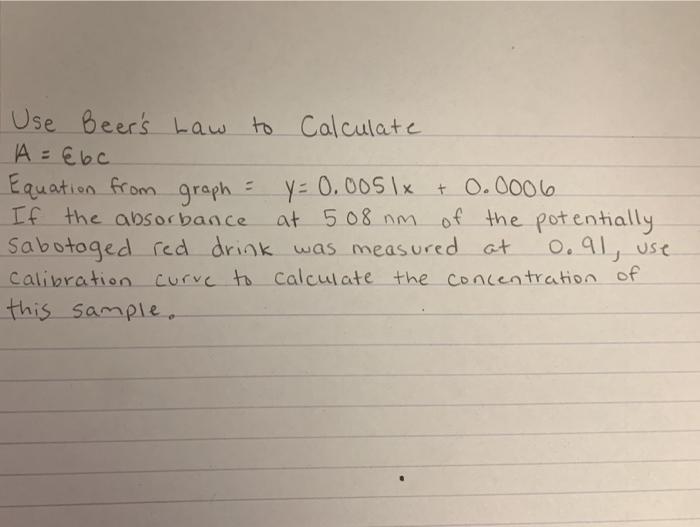 Use Beer's Law to Calculate
A = εbc
Equation from graph = y = 0.0051x + 0.0006
If the absorbance at 508 nm of the potentially
sabotaged red drink was measured at 0.91, use
calibration curve to calculate the concentration of
this sample.